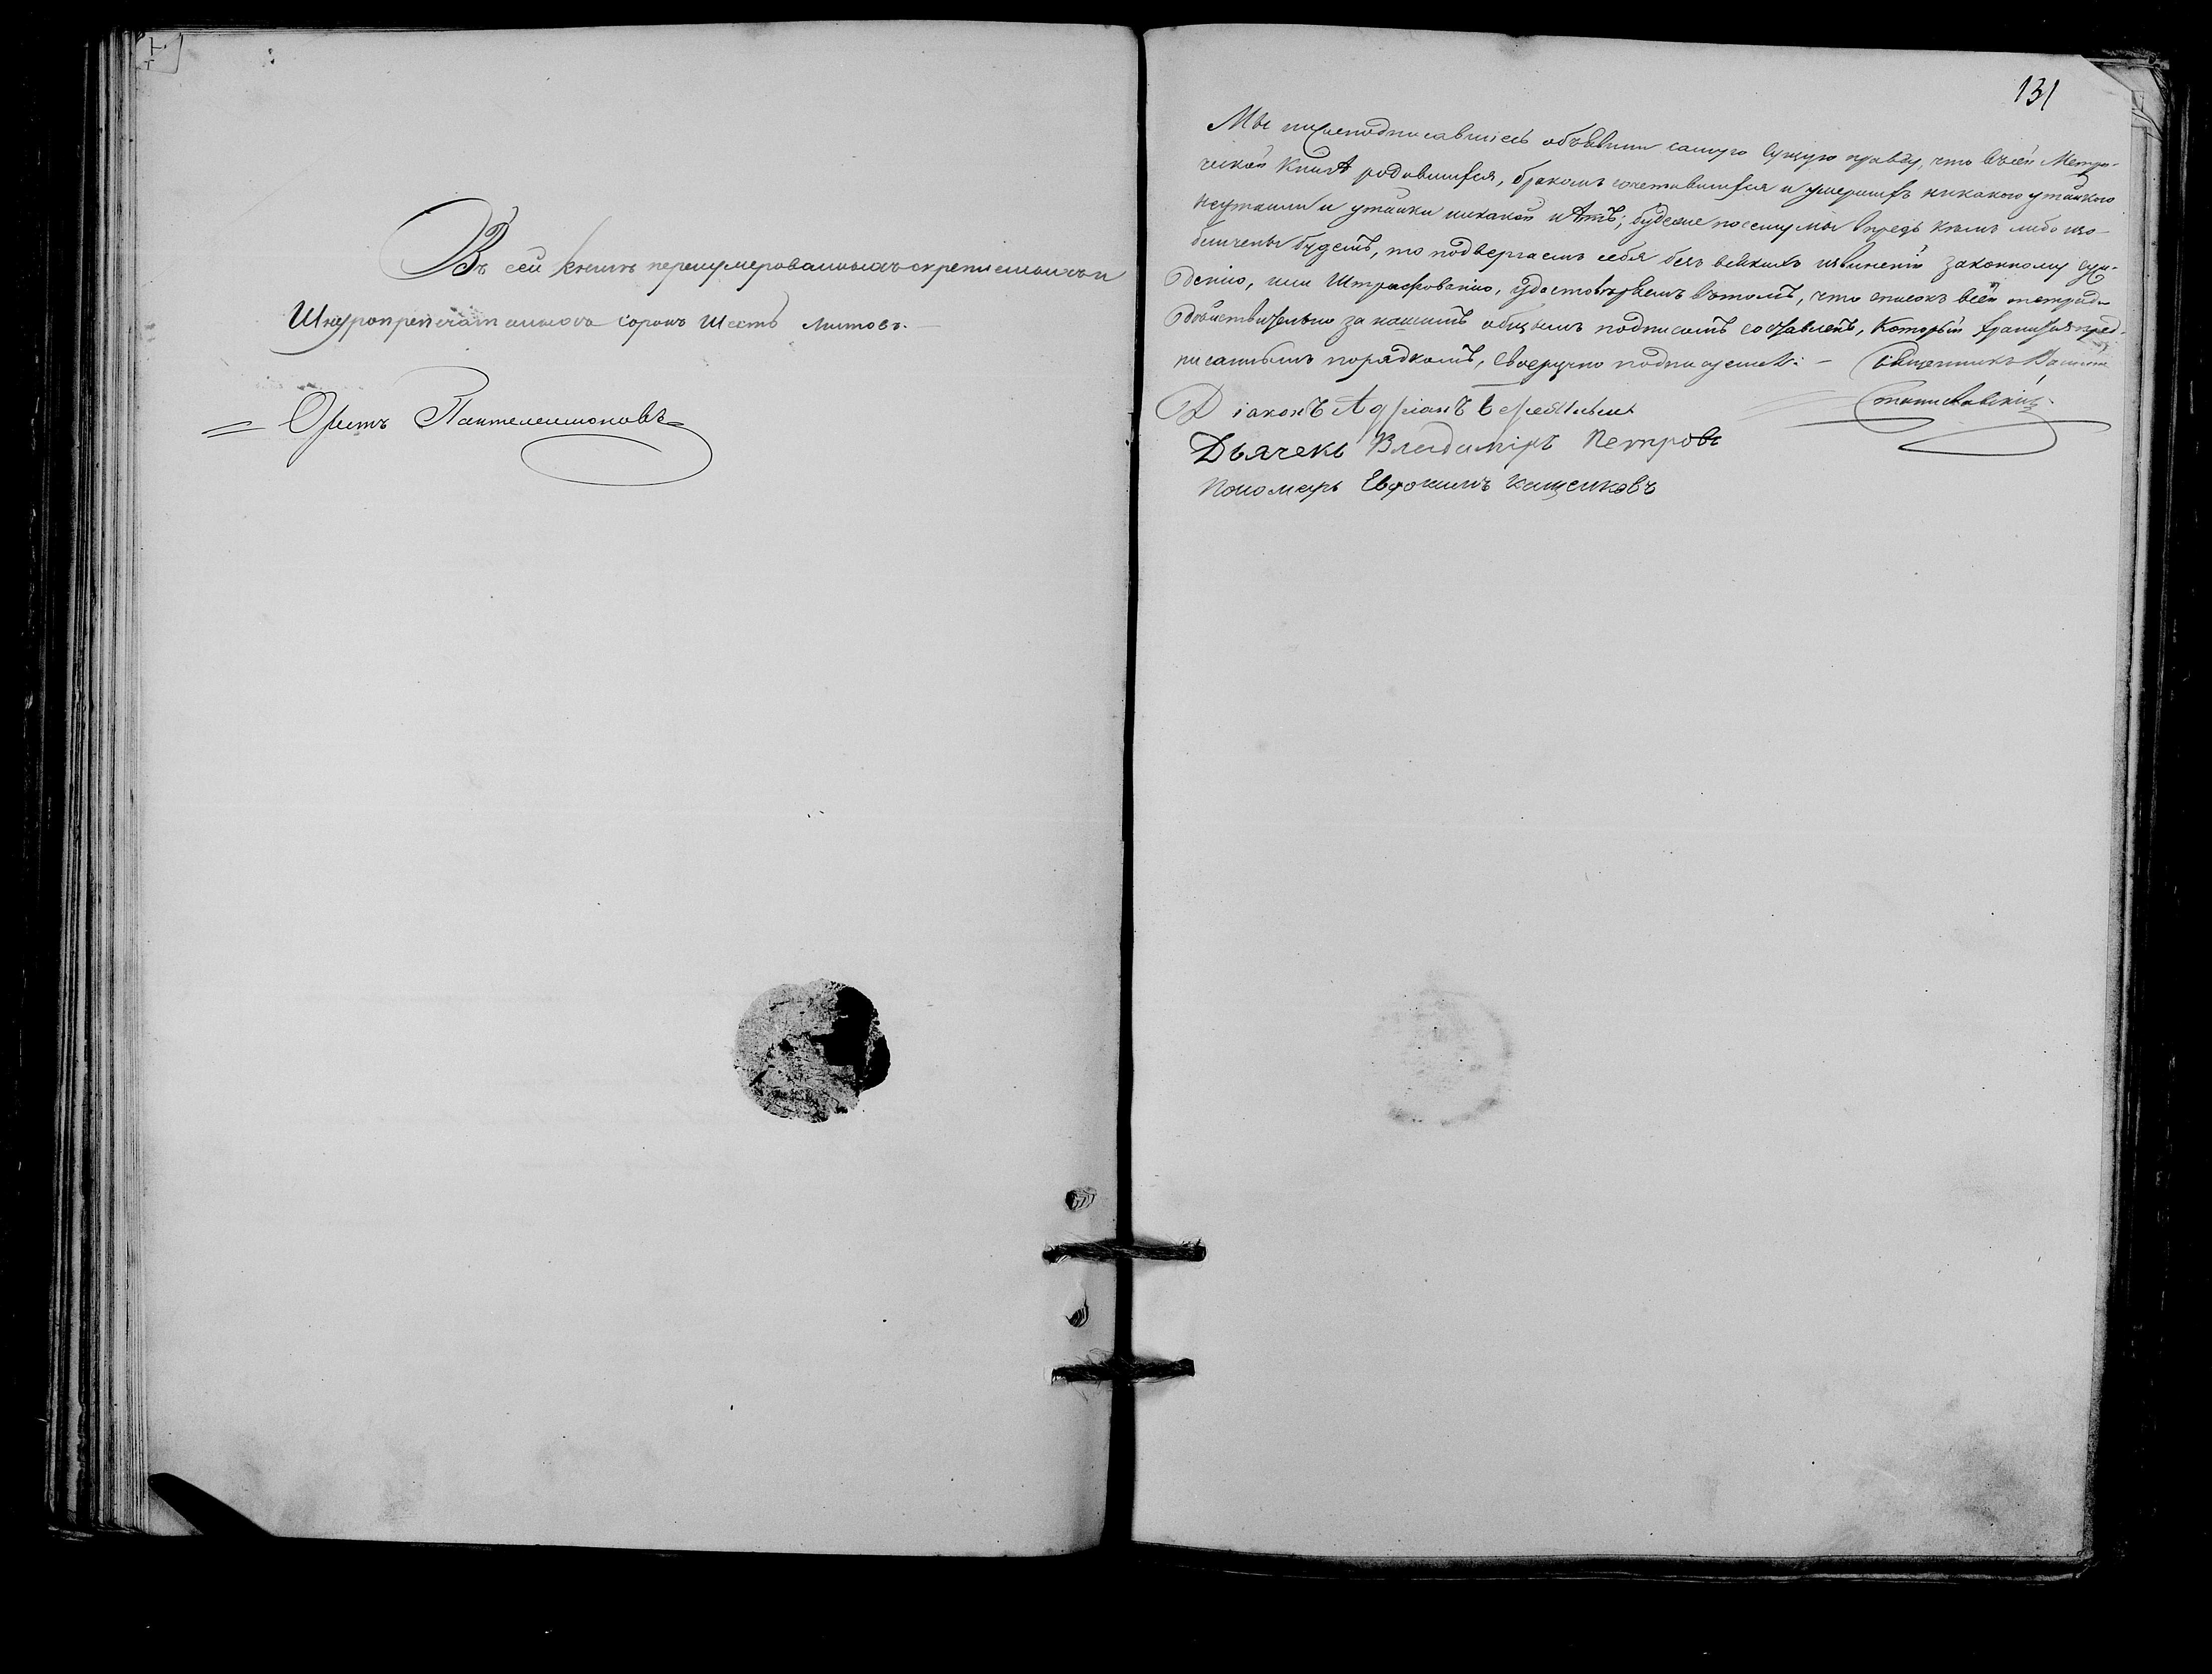 Въ сей книгѣ перенумерованныхъ скрепленныхъ и
Шнуропрепечатанныхъ сорокъ шесть листовъ.
Орестъ Пантелеимоновъ
131
Мы нижеподписавшіесь объявили самую сущую правду, что въ сей Метри-
ческой Книгѣ родившихся, бракомъ сочетавшихся и умершихъ никакого утайного
неутаили и утайки никакой нѣтъ; будеже посему мы впредь кѣмъ либо изо-
бличены будемъ, то подвергаемъ себя безъ всякихъ извиненій законному суж-
денію, или Штрафованію, удостовѣряемъ въ томъ, что списокъ всей тетради
дѣйствительно за нашимъ общимъ подписомъ составленъ, который
писаннымъ порядкомъ, своеручно подписуемся. Священникъ
Станиславскій
Діаконъ Адріанъ
Дьячекъ Владиміръ Петровъ
Пономарь Евфимъ Кащенковъ